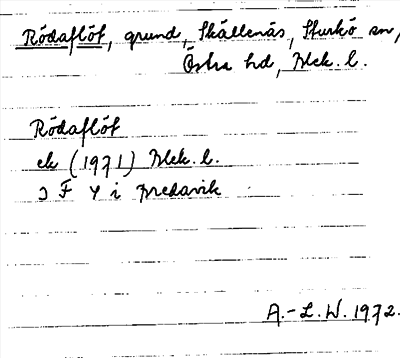 Rödaflöt, grund, Skällenäs, Sturkö sn,
Östra hd, Blek. l.
Rödaflöt
ek (1971) Blek. l.
i Bredavik
A.-L. W. 1972.